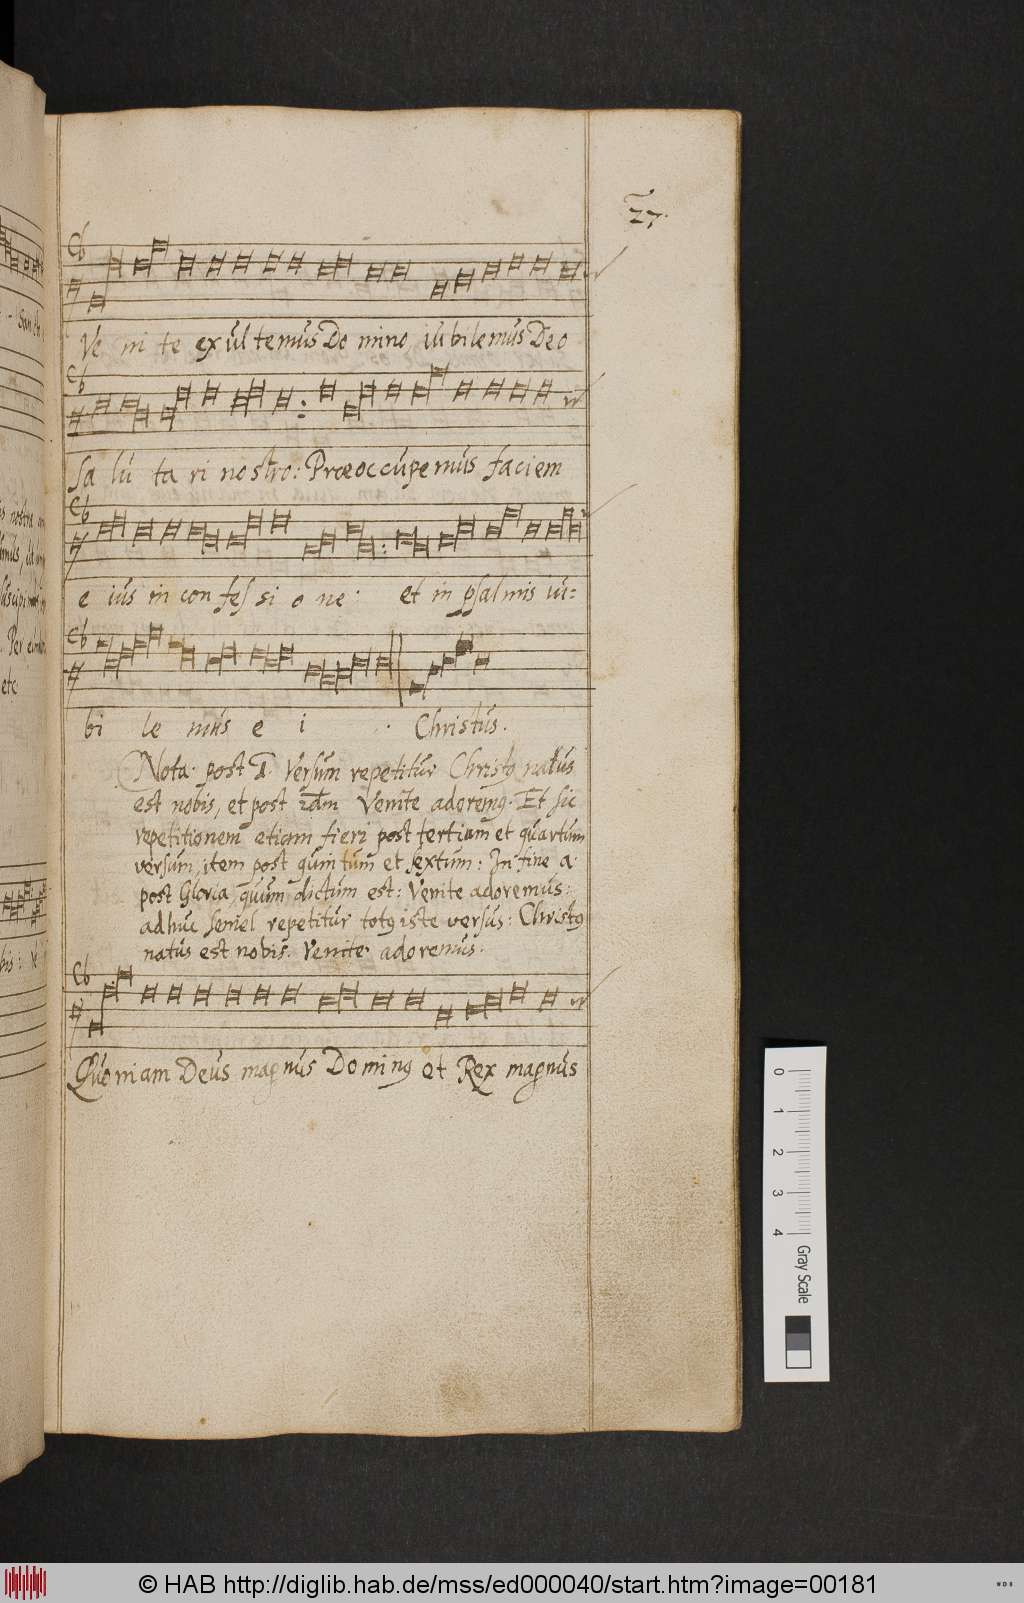 27.
Ve ni te exultemus Do mino, iubilemus Deo
Sa lu ta ri nostro: Præoccupemus faciem
e ius in con fes si o ne: et in psalmis iu=
bi le mus e i . Christus.
Nota: post 1. Versum repetitur Christ9 natus
est nobis, et post Venite adorem9. Et sic
repetitionem etiam fieri post tertiam et quartum
versum, item post quintum et sextum: In fine a:
post Gloria, quum dictum est: Venite adoremus:
adhuc semel repetitur tot9 iste versus: Christ9
natus est nobis. Venite adoremus.
Quoniam Deus magnus Domin9 et Rex magnus
0 1 2 3 4 Gray Scale
© HAB http://diglib.hab.de/mss/ed000040/start.htm?image=00181